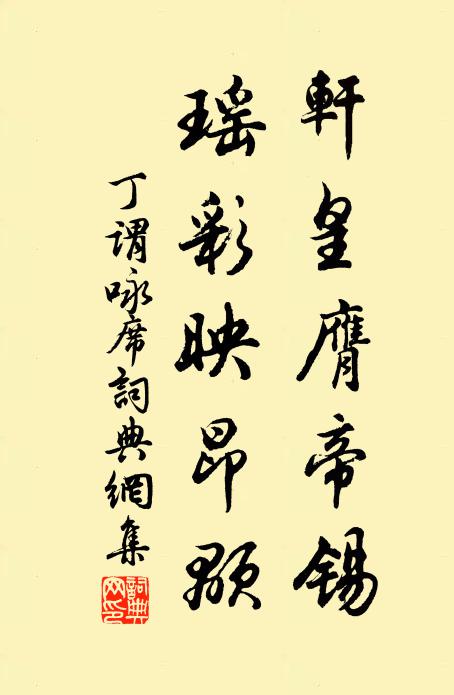 軒皇膺帝錫
瑶彩映昂顒
丁謂咏席詞典網集
詞典网印